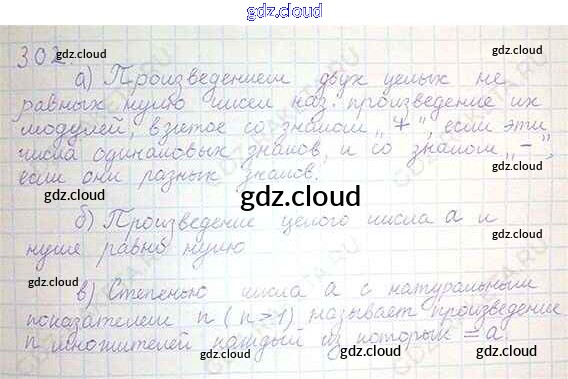 gdz.cloud
302.
gdz.cloud
gdz.cloud
а) Произведением двух целых не
равных нулю чисел наз. произведение их
модулей, взятое со знаком „+", если эти
числа одинаковых знаков, и со знаком „-",
если они разных знаков.
gdz.cloud
gdz.cloud
gdz.cloud
б) Произведение целого числа a и
нуля равно нулю
gdz.cloud
gdz.cloud
gdz.cloud
в) Степенью числа a с натуральным
показателем n (n>1) называет произведение
n множителей каждый из которых = a.
gdz.cloud
gdz.cloud